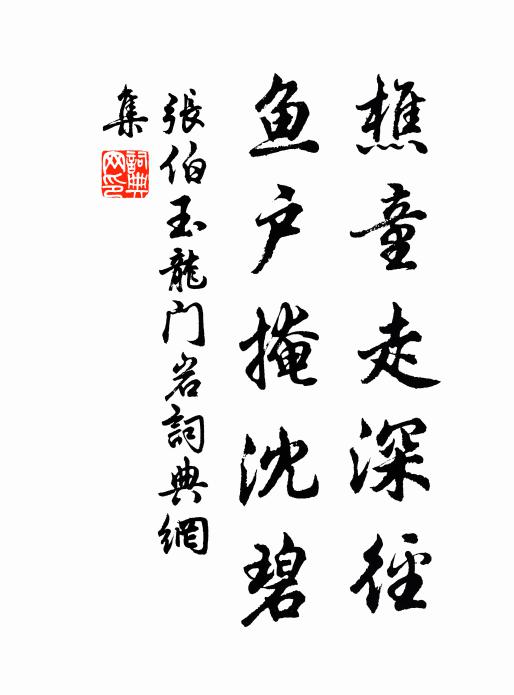 樵童走深徑
鱼户掩沈碧
張伯玉龍门岩詞典網
集
詞典网印